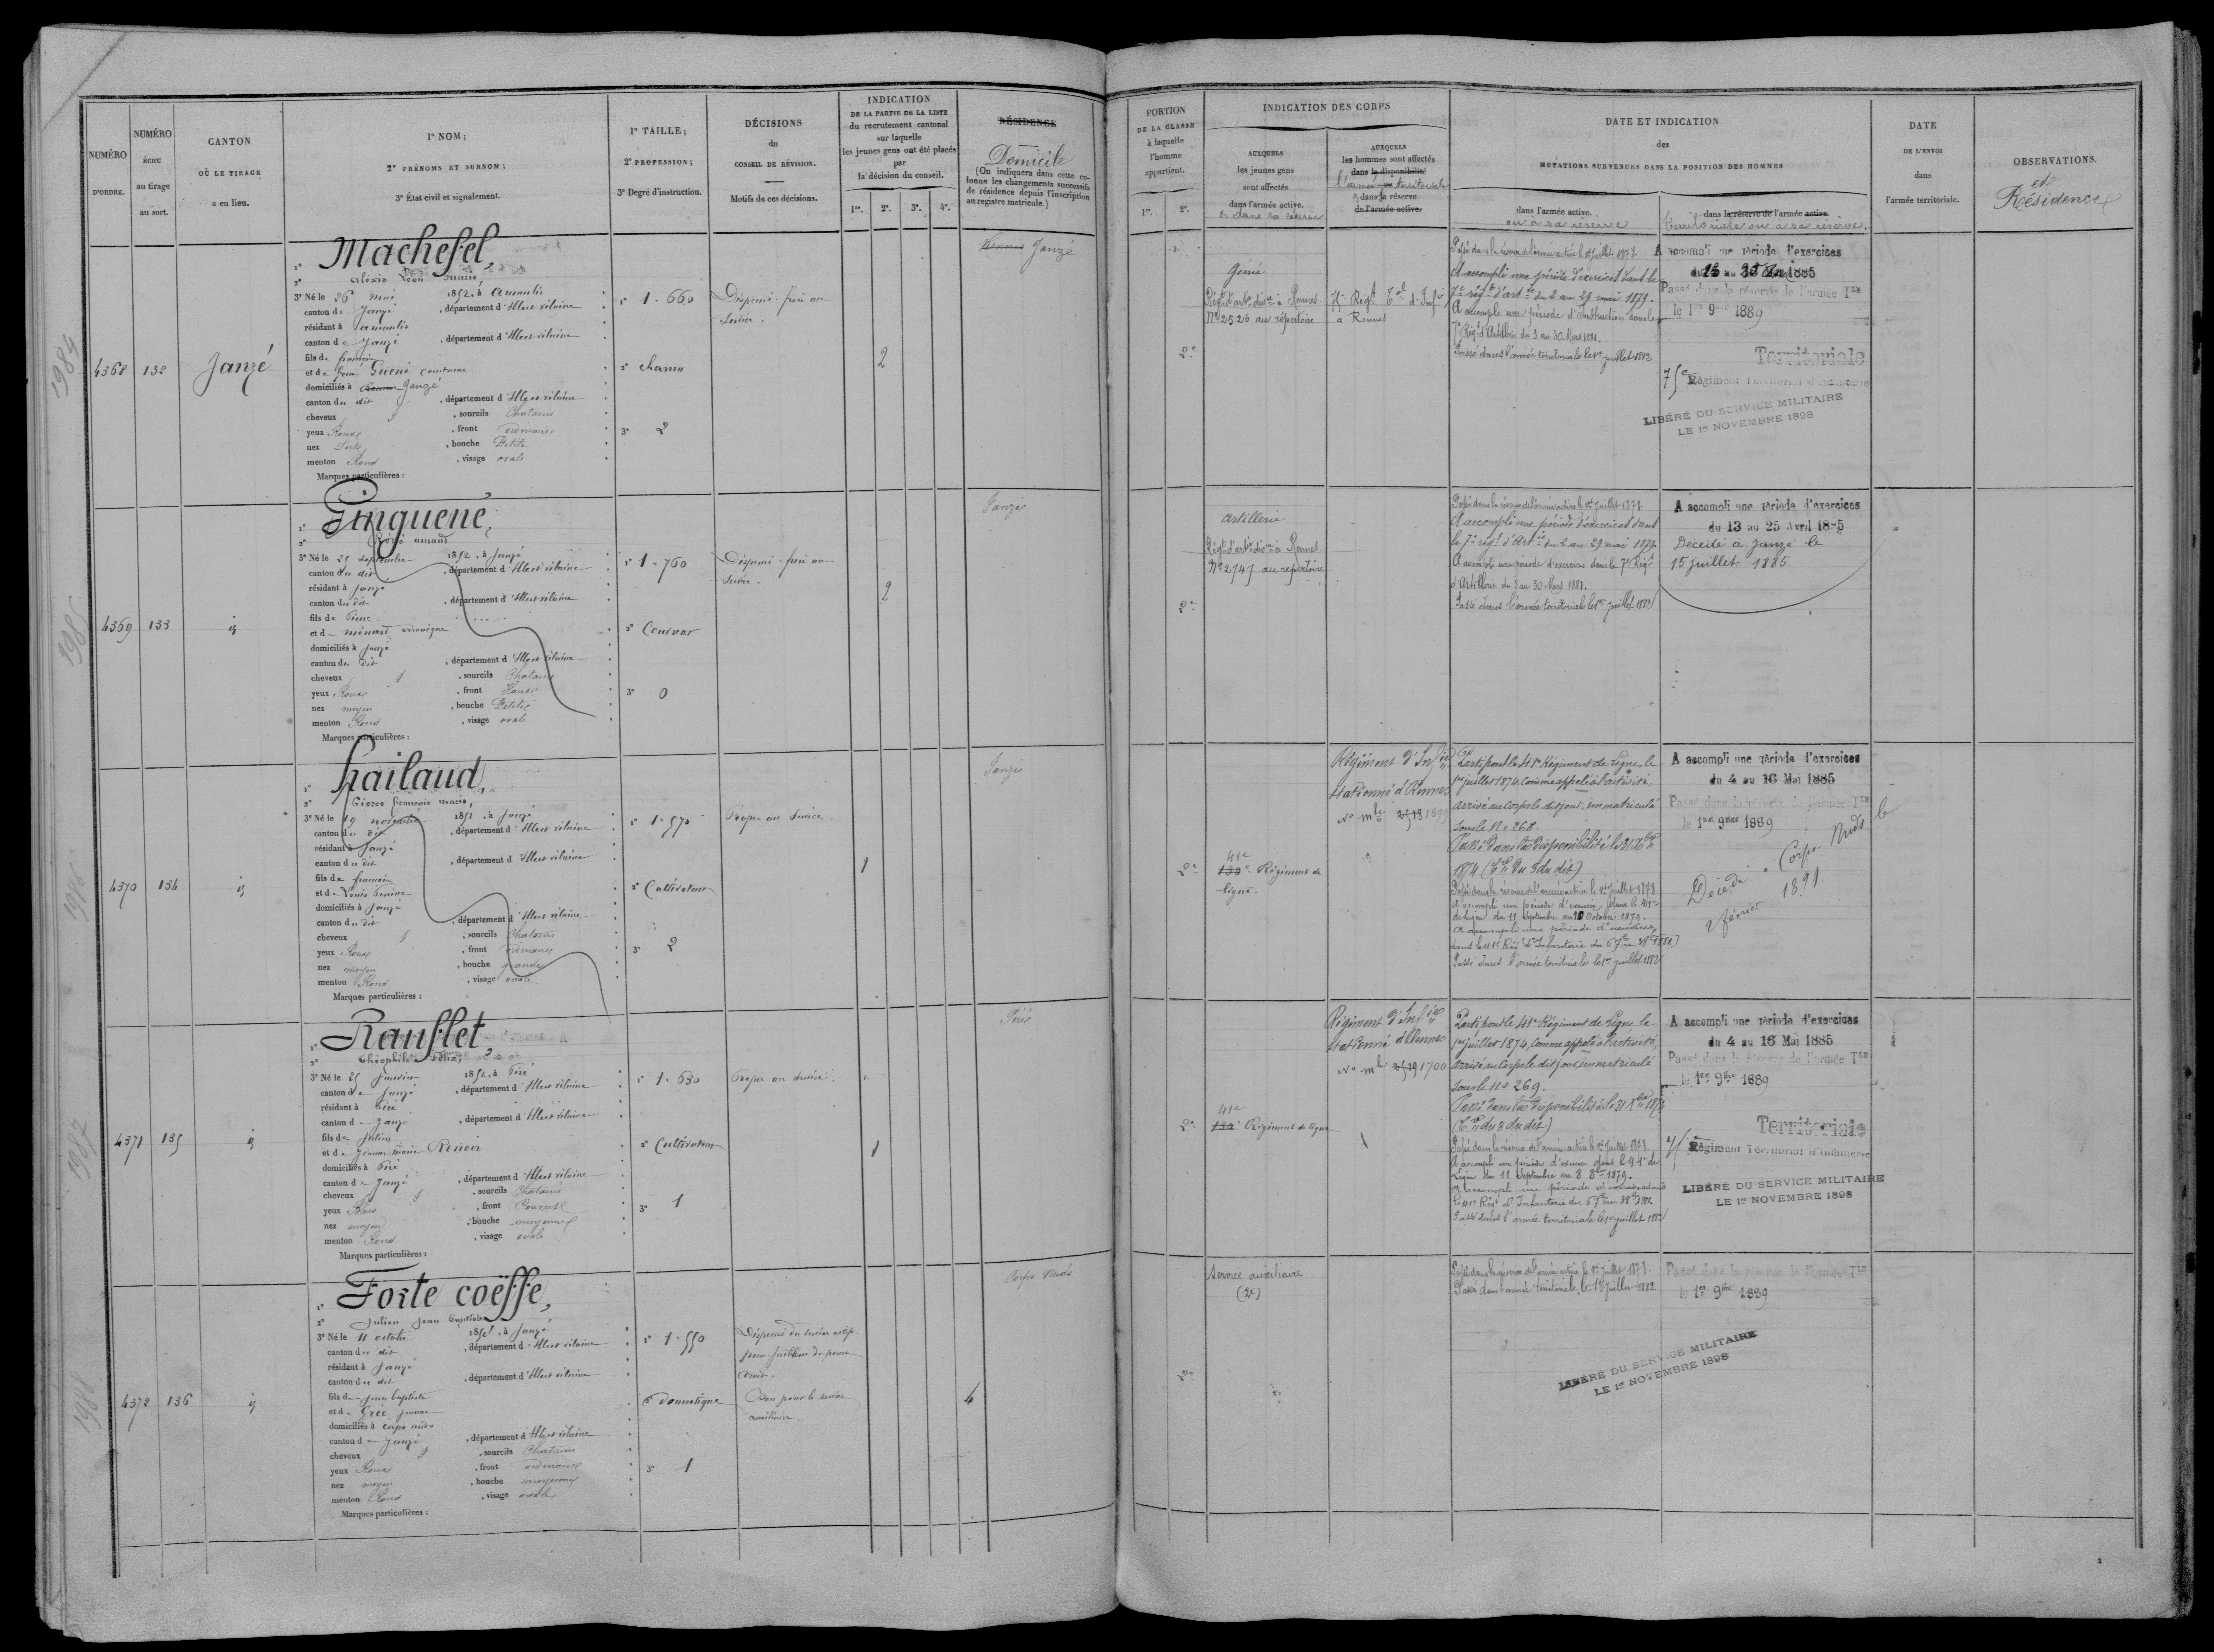 NUMÉRO
D'ORDRE.
NUMÉRO
ÉCHU
au tirage
au sort.
CANTON
OÙ LE TIRAGE
a eu lieu.
1° NOM ;
2° PRÉNOMS ET SURNOM ;
3° État civil et signalement.
1° TAILLE ;
2° PROFESSION ;
3° Degré d'instruction.
DÉCISIONS
du
CONSEIL DE RÉVISION.
Motifs de ces décisions.
INDICATION
DE LA PARTIE DE LA LISTE
du recrutement cantonal
sur laquelle
les jeunes gens ont été placés
par
la décision du conseil.
1re. 2e. 3e. 4e.
RÉSIDENCE
Domicile
(On indiquera dans cette co-
lonne les changements successifs
de résidence depuis l'inscription
au registre matricule.)
PORTION
DE LA CLASSE
à laquelle
l'homme
appartient.
1re. 2e.
INDICATION DES CORPS
AUXQUELS
les jeunes gens
sont affectés
dans l'armée active.
& dans sa réserve
AUXQUELS
les hommes sont affectés
dans la disponibilité
l'armée territoriale
& dans sa réserve
de l'armée active.
DATE ET INDICATION
des
MUTATIONS SURVENUES DANS LA POSITION DES HOMMES
dans l'armée active.
ou à sa réserve
dans la réserve de l'armée active
territoriale ou à sa réserve.
DATE
DE L'ENVOI
dans
l'armée territoriale.
OBSERVATIONS.
et
Résidence
1984
4368
132
Janzé
1° Machefel,
2° Alexis Léon Marie,
3° Né le 26 mai 1852, à Amanlis
canton de Janzé, département d'Ille et vilaine
résidant à Amanlis
canton de Janzé, département d'Ille et vilaine
fils de françois
et de
domiciliés à Rennes Janzé
canton du dit, département d'Ille et vilaine
cheveux sourcils Chatains
yeux Roux, front ordinaire
nez Forte, bouche Petite
menton Rond, visage ovale
Marques particulières :
1° 1.660
2° charron
3° 2
2
Rennes Janzé
2e
Génie
Régt d'artie divre à Rennes
No 2526 au répertoire
75e Régt Tal d'Infie
à Rennes
Passé dans la réserve de l'armée active le 1er juillet 1878.
A accompli une période d'exercices dans le
7e régt d'artie du 2 au 29 mai 1879.
A accompli une période d'Instruction dans le
7e Régt d'Artillerie du 3 au 30 Mars 1881.
Passé dans l'armée territoriale le 1er juillet 1882
A accompli une période d'exercices
1885
Passé dans la réserve de l'armée Tle
le 1er 9bre 1889
Territoriale
75e Régiment Territorial d'Infanterie
LIBÉRÉ DU SERVICE MILITAIRE
LE 1er NOVEMBRE 1898
1985
4369
133
id
1° Ginguené,
2° amand
3° Né le 25 septembre 1852, à Janzé
canton du dit, département d'Ille et vilaine
résidant à Janzé
canton du dit, département d'Ille et vilaine
fils de Pierre
et de Ménard véronique
domiciliés à Janzé
canton du dit, département d'Ille et vilaine
cheveux sourcils Chatains
yeux Roux, front Haut
nez moyen, bouche Petite
menton Rond, visage ovale
Marques particulières :
1° 1.760
2° Couvreur
3° 0
2
Janzé
2e
Artillerie
Régt d'artie divre à Rennes
No 2747 au répertoire
Passé dans la réserve de l'armée active le 1er juillet 1878.
A accompli une période d'exercices dans
le 7e régt d'Artie du 2 au 29 mai 1879.
A accompli une période d'exercices dans le 7e Régt
d'Artillerie du 3 au 30 Mars 1881.
Passé dans l'armée territoriale le 1er juillet 1882
A accompli une période d'exercices
du 13 au 25 Avril 1885
Décédé à Janzé le
15 juillet 1885.
1986
4370
134
id
1° hailaud,
2° Pierre françois marie,
3° Né le 19 novembre 1852, à Janzé
canton du dit, département d'Ille et vilaine
résidant à Janzé
canton du dit, département d'Ille et vilaine
fils de françois
et de Louis Perrine
domiciliés à Janzé
canton du dit, département d'Ille et vilaine
cheveux sourcils Chatains
yeux Roux, front ordinaire
nez moyen, bouche grande
menton Rond, visage ovale
Marques particulières :
1° 1.570
2° Cultivateur
3° 2
Propre au service.
1
Janzé
2e
41e
130e Régiment de
ligne.
Régiment d'Infie
stationné à Rennes
No mle 1699
Parti pour le 41e Régiment de Ligne, le
1er juillet 1874, comme appelé à l'activité,
arrivé au corps le dit jour, immatriculé
sous le No 268.
Passé dans la disponibilité le 31 Xbre
1874
Passé dans la réserve de l'armée active le 1er juillet 1878
A accompli une période d'exercices dans le 41e
de ligne du 11 septembre au 10 octobre 1879.
A accompli une période d'exercices
dans le 41e Régt d'Infanterie
Passé dans l'armée territoriale le 1er juillet 1882
A accompli une période d'exercices
du 4 au 16 Mai 1885
Passé dans la réserve de l'armée Tle
le 1er 9bre 1889
Décédé à Corps Nuds le
2 février 1891
1987
4371
135
id
1° Rausflet,
2° Théophile Félix,
3° Né le 25 janvier 1852, à Piré
canton de Janzé, département d'Ille et vilaine
résidant à Piré
canton de Janzé, département d'Ille et vilaine
fils de Julien
et de Jeanne marie Renoir
domiciliés à Piré
canton de Janzé, département d'Ille et vilaine
cheveux sourcils Chatains
yeux Roux, front Couvert
nez moyen, bouche moyenne
menton Rond, visage ovale
Marques particulières :
1° 1.630
2° Cultivateur
3° 1
Propre au service.
1
Piré
2e
41e
130e Régiment de ligne
Régiment d'Infie
stationné à Rennes
No mle 1700
Parti pour le 41e Régiment de Ligne, le
1er juillet 1874, comme appelé à l'activité,
arrivé au corps le dit jour, immatriculé
sous le No 269.
Passé dans la disponibilité le 31 Xbre 1874
Passé dans la réserve de l'armée active le 1er juillet 1878
A accompli une période d'exercices dans le 41e de
Ligne du 11 septembre au 8 8bre 1879.
A accompli une période d'exercices dans
le 41e Régt d'Infanterie
Passé dans l'armée territoriale le 1er juillet 1882
A accompli une période d'exercices
du 4 au 16 Mai 1885
Passé dans la réserve de l'armée Tle
le 1er 9bre 1889
Territoriale
Régiment Territorial d'Infanterie
LIBÉRÉ DU SERVICE MILITAIRE
LE 1er NOVEMBRE 1898
1988
4372
136
id
1° Forte coëffe,
2° Julien Jean baptiste
3° Né le 11 octobre 1852, à Janzé
canton du dit, département d'Ille et vilaine
résidant à Janzé
canton du dit, département d'Ille et vilaine
fils de jean baptiste
et de Grée jeanne
domiciliés à corps nuds
canton de Janzé, département d'Ille et vilaine
cheveux sourcils Chatains
yeux Roux, front ordinaire
nez moyen, bouche moyenne
menton Rond, visage ovale
Marques particulières :
1° 1.550
2° domestique
3° 1
Dispensé du service actif
pour faiblesse du
droit.
Bon pour le service
auxiliaire.
4
Corps Nuds
2e
Service auxiliaire
(2e)
Passé dans la réserve de l'armée active le 1er juillet 1878.
Passé dans l'armée territoriale, le 1er juillet 1882
Passé dans la réserve de l'armée Tle
le 1er 9bre 1889
LIBÉRÉ DU SERVICE MILITAIRE
LE 1er NOVEMBRE 1898